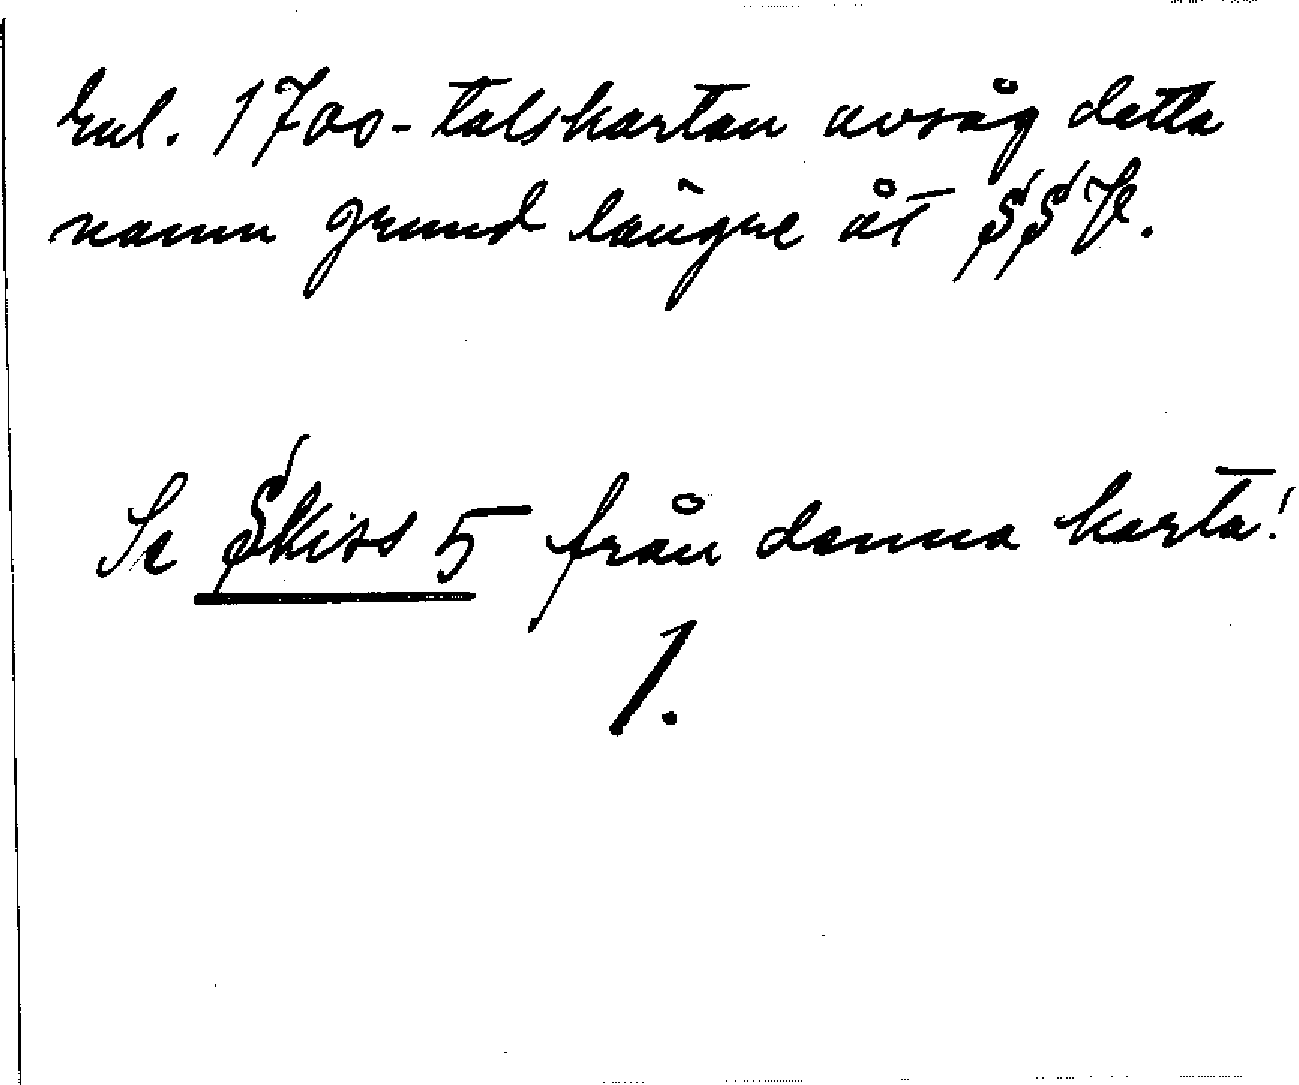 Enl. 1700-talskartan avsåg detta
namn grund längre åt SSV.
Se Skiss 5 från denna karta!
1.